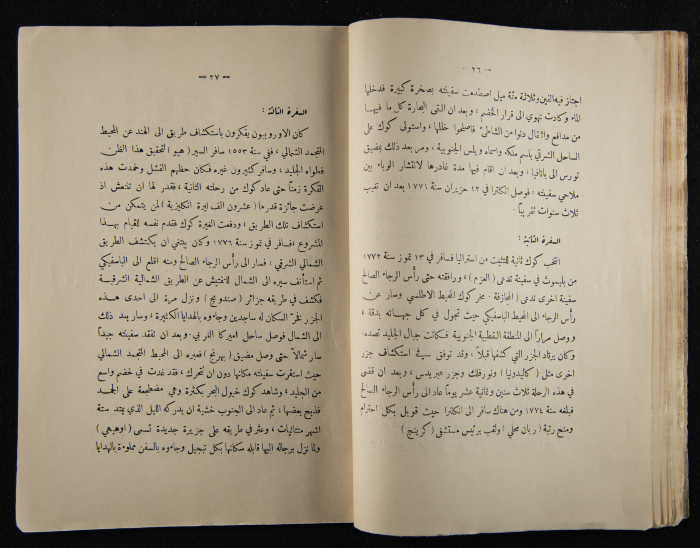 — ٢٦ —
اجتاز فيه الفين وثلاثة مئة ميل اصطدمت سفينته بصخرة كبيرة فدخلها
الماء وكادت تهوي الى قرار الخضم ، وبعد ان القى البحارة كل ما فيها
من مدافع واثقال دنوا من الشاطئ فاصلحوا خللها ، واستولى كوك على
الساحل الشرقي باسم ملكه واسماه ويلس الجنوبية ، ومر بعد ذلك بمضيق
تورس الى باتافيا ، وبعد ان اقام فيها مدة غادرها لانتشار الوباء بين
ملاحي سفينته ؛ فوصل انكلترا في ١٢ حزيران سنة ١٧٧١ بعد ان تغيب
ثلاث سنوات تقريباً .
السفرة الثانية :
انتخب كوك ثانية للتثبت من استراليا فسافر في ١٣ تموز سنة ١٧٧٢
من بليموت في سفينة تدعى ( العزم ) ، ورافقته حتى رأس الرجاء الصالح
سفينة اخرى تدعى ( المجازفة . مخر كوك المحيط الاطلسي وسار عن
رأس الرجاء الى المحيط الباسفيكي حيث تجول في كل جهاته بدقة ،
ووصل مراراً الى المنطقة القطبية الجنوبية فكانت جبال الجليد تصده .
وكان يرتاد الجزر التي كشفها قبلاً ، وقد توفق في استكشاف جزر
اخرى مثل ( كاليدونيا ) ونورفلك وجزر هبريدس ، وبعد ان قضى
في هذه الرحلة ثلاث سنين وثمانية عشر يوماً عاد الى رأس الرجاء الصالح
فبلغه سنة ١٧٧٤ ومن هناك سافر الى انكلترا حيث قوبل بكل احترام
ومنح رتبة ( ربان محلي ) ولقب برئيس مستشفى ( كرينج )
— ٢٧ —
السفرة الثالثة :
كان الاوروبيون يفكرون باستكشاف طريق الى الهند عن المحيط
المتجمد الشمالي ، ففي سنة ١٥٥٣ سافر السير ( هيو ) لتحقيق هذا الظن
فطواه الجليد ، وسافر كثيرون غيره فكان حظهم الفشل وخمدت هذه
الفكرة زمناً حتى عاد كوك من رحلته الثانية ، فقدر لها ان تنتعش اذ
عرضت جائزة قدرها ( عشرون الف ليرة انكليزية ) لمن يتمكن من
استكشاف تلك الطريق ، ودفعت الغيرة كوك فقدم نفسه للقيام بهذا
المشروع ، فسافر في تموز سنة ١٧٧٦ وكان يبتغي ان يكتشف الطريق
الشمالي الشرقي : فسار الى رأس الرجاء الصالح ومنه اقلع الى الباسفيكي
ثم استأنف سيره الى الشمال للتفتيش عن الطريق الشمالية الشرقية
فكشف في طريقه جزائر ( صندويج ) ونزل مرة الى احدى هذه
الجزر فخرّ السكان له ساجدين وجاءوه بالهدايا الكثيرة ، وسار بعد ذلك
الى الشمال فوصل ساحل اميركا الغربي . وبعد ان تفقد سفينته جيداً
سار شمالاً حتى وصل مضيق ( بهرنج ) فعبره الى المحيط المتجمد الشمالي
حيث استقرت سفينته مكانها دون ان تتحرك ، فقد غدت في خضم واسع
من الجليد ، وشاهد كوك خيول البحر بكثرة وهي مضطجعة على الجمد
فذبح بعضها ، ثم عاد الى الجنوب خشية ان يدركه الليل الذي يمتد ستة
اشهر متتاليات ، وعثر في طريقه على جزيرة جديدة تسمى ( اوهيهي )
ولما نزل برجاله اليها قابله سكانها بكل تبجيل وجاءوه بالسفن مملوءة بالهدايا